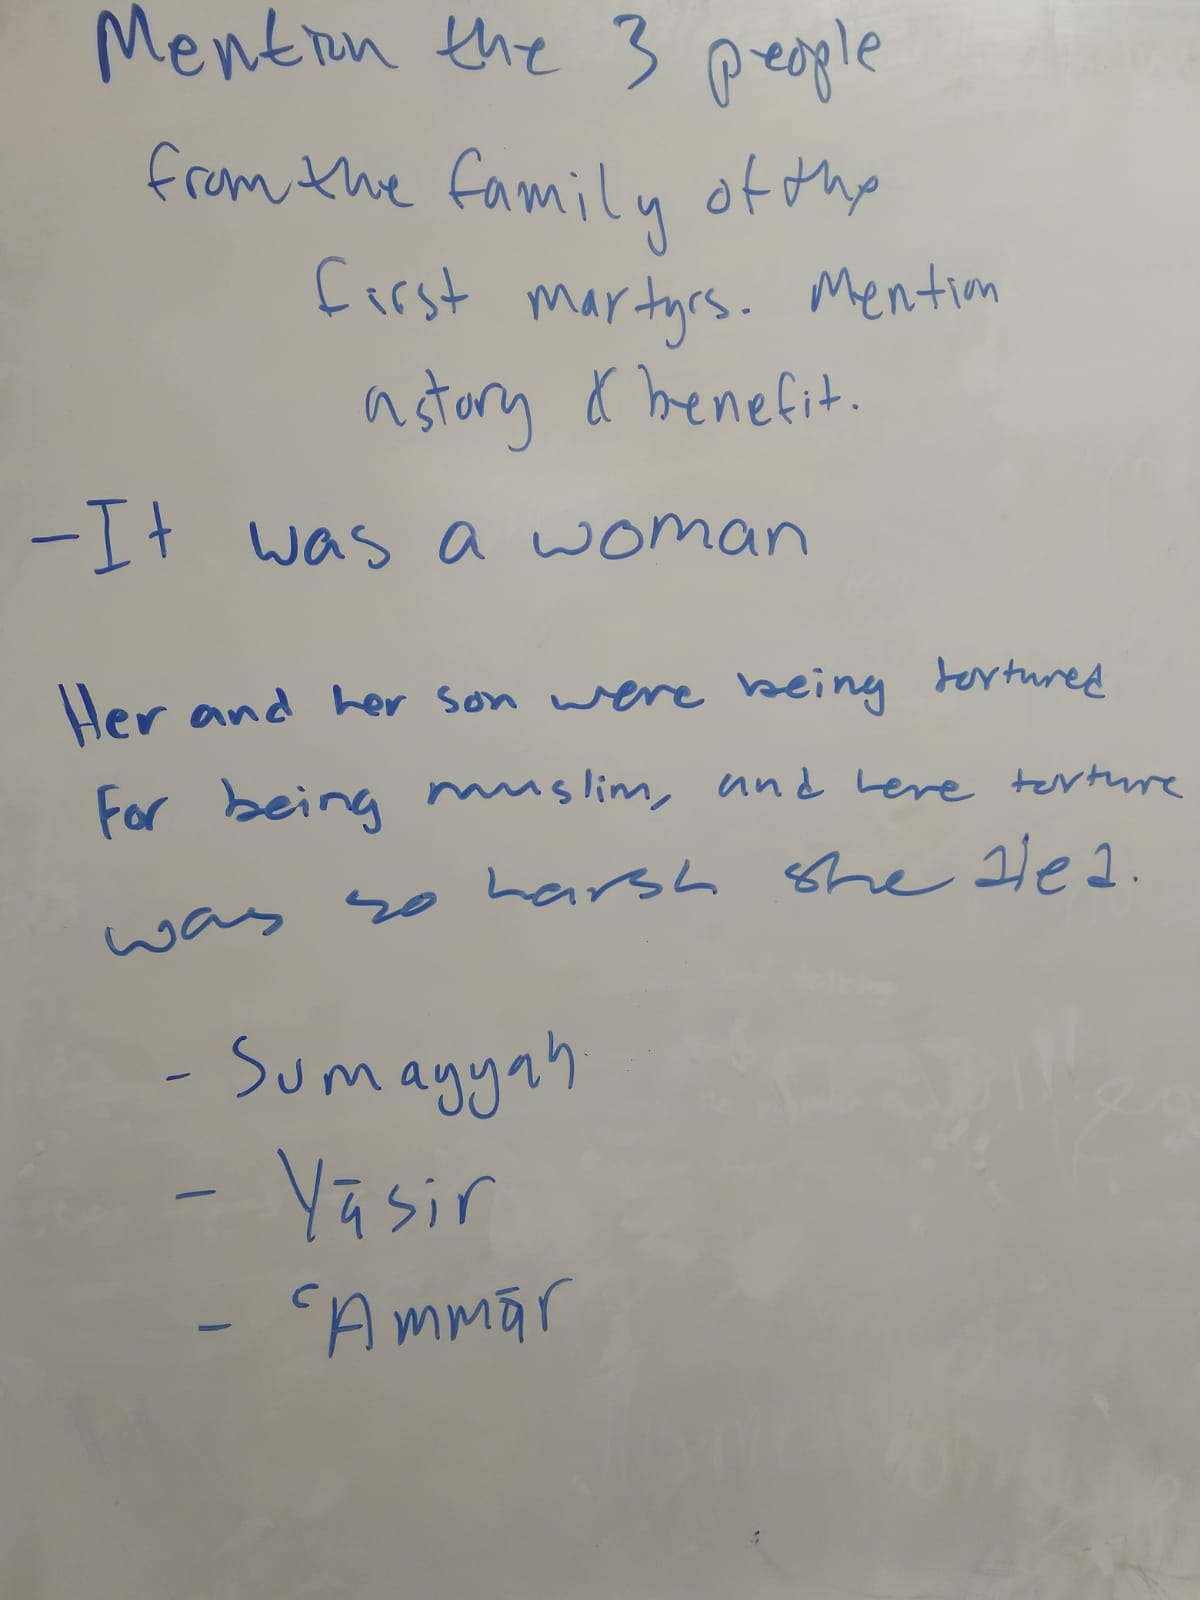 Mention the 3 people
from the family of the
first martyrs. Mention
a story & benefit.
- It was a woman
Her and her son were being tortured
For being muslim, and here torture
was so harsh she died.
- Sumayyah
- Yāsir
- ʿAmmār